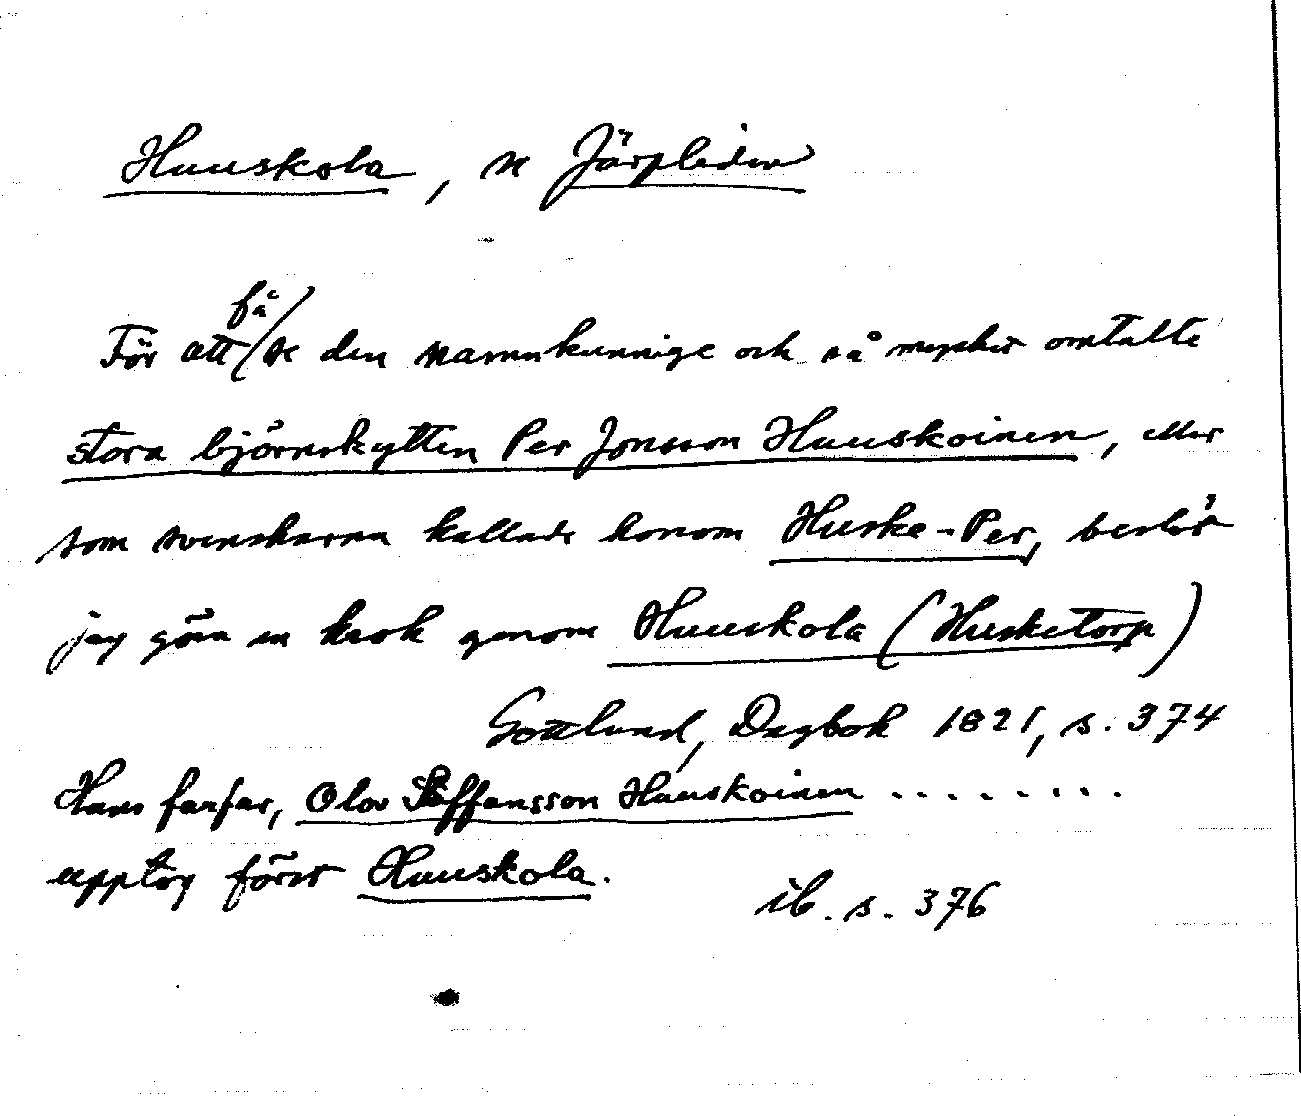 Huuskola, se Järpliden
För att få se den namnkunnige och så mycket omtalte
stora björnskytten Per Jonsson Huuskoinen, eller
som svenskarna kallade honom Huske-Per, beslöt
jag göra en krok genom Huuskola (Husketorp)
Gottlund, Dagbok 1821, s. 374
Hans farfar, Olov Staffansson Huuskoinen ........
upptog först Huuskola.
ib. s. 376